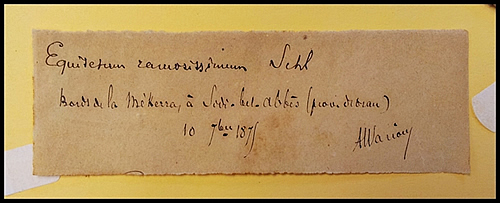 Equisetum ramosissimum Schl
Bords de la Mékerra, à Sidi-bel-Abbès (prov. d'oran)
10 7bre 1875
AWarion